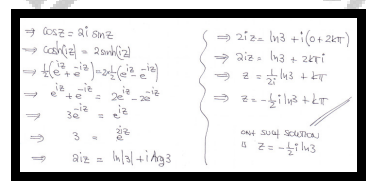 ⇒ cosz = 2i sinz
⇒ cosh(iz) = 2sinh(iz)
⇒ ½(e^{iz} + e^{-iz}) = 2×½(e^{iz} - e^{-iz})
⇒ e^{iz} + e^{-iz} = 2e^{iz} - 2e^{-iz}
⇒ 3e^{-iz} = e^{iz}
⇒ 3 = e^{2iz}
⇒ 2iz = ln|3| + i Arg3
⇒ 2iz = ln3 + i(0+2kπ)
⇒ 2iz = ln3 + 2kπi
⇒ z = 1/2i ln3 + kπ
⇒ z = -½i ln3 + kπ
SUCH SOLUTION
IS z = -½i ln3